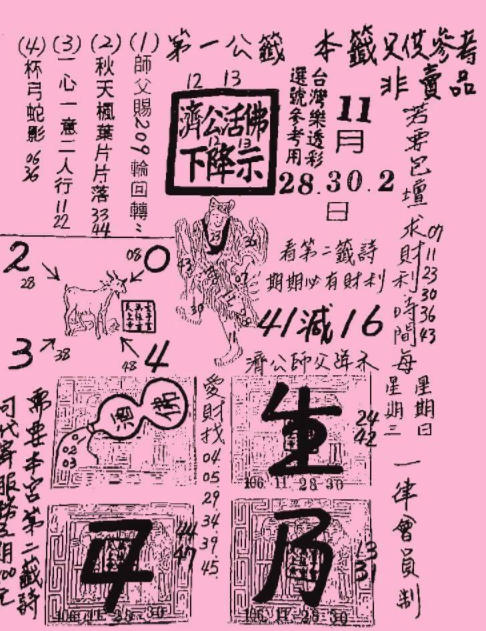 本籤只供參考
非賣品
第一公籤
12 13
濟公活佛
下降示
台灣樂透彩
選號參考用
11
月
28.30.2
日
(1)師父賜209輪回轉
(2)秋天楓葉片片落 33 44
(3)一心一意二人行 11 22
(4)杯弓蛇影 06 36
若要包壇求財利時間每
07
11
23
30
36
43
星期日
星期三
一律會員制
看第二籤詩
期期必有財利
41減16
濟公師父洋示
2
28
08
0
3
38
48
4
愛財找 04 05 29 34 39 45
01
02
03
生
24
42
106 11 28 30
44
47
106 11 28 30
乃
13
31
106 11 28 30
需要本宮第二籤詩